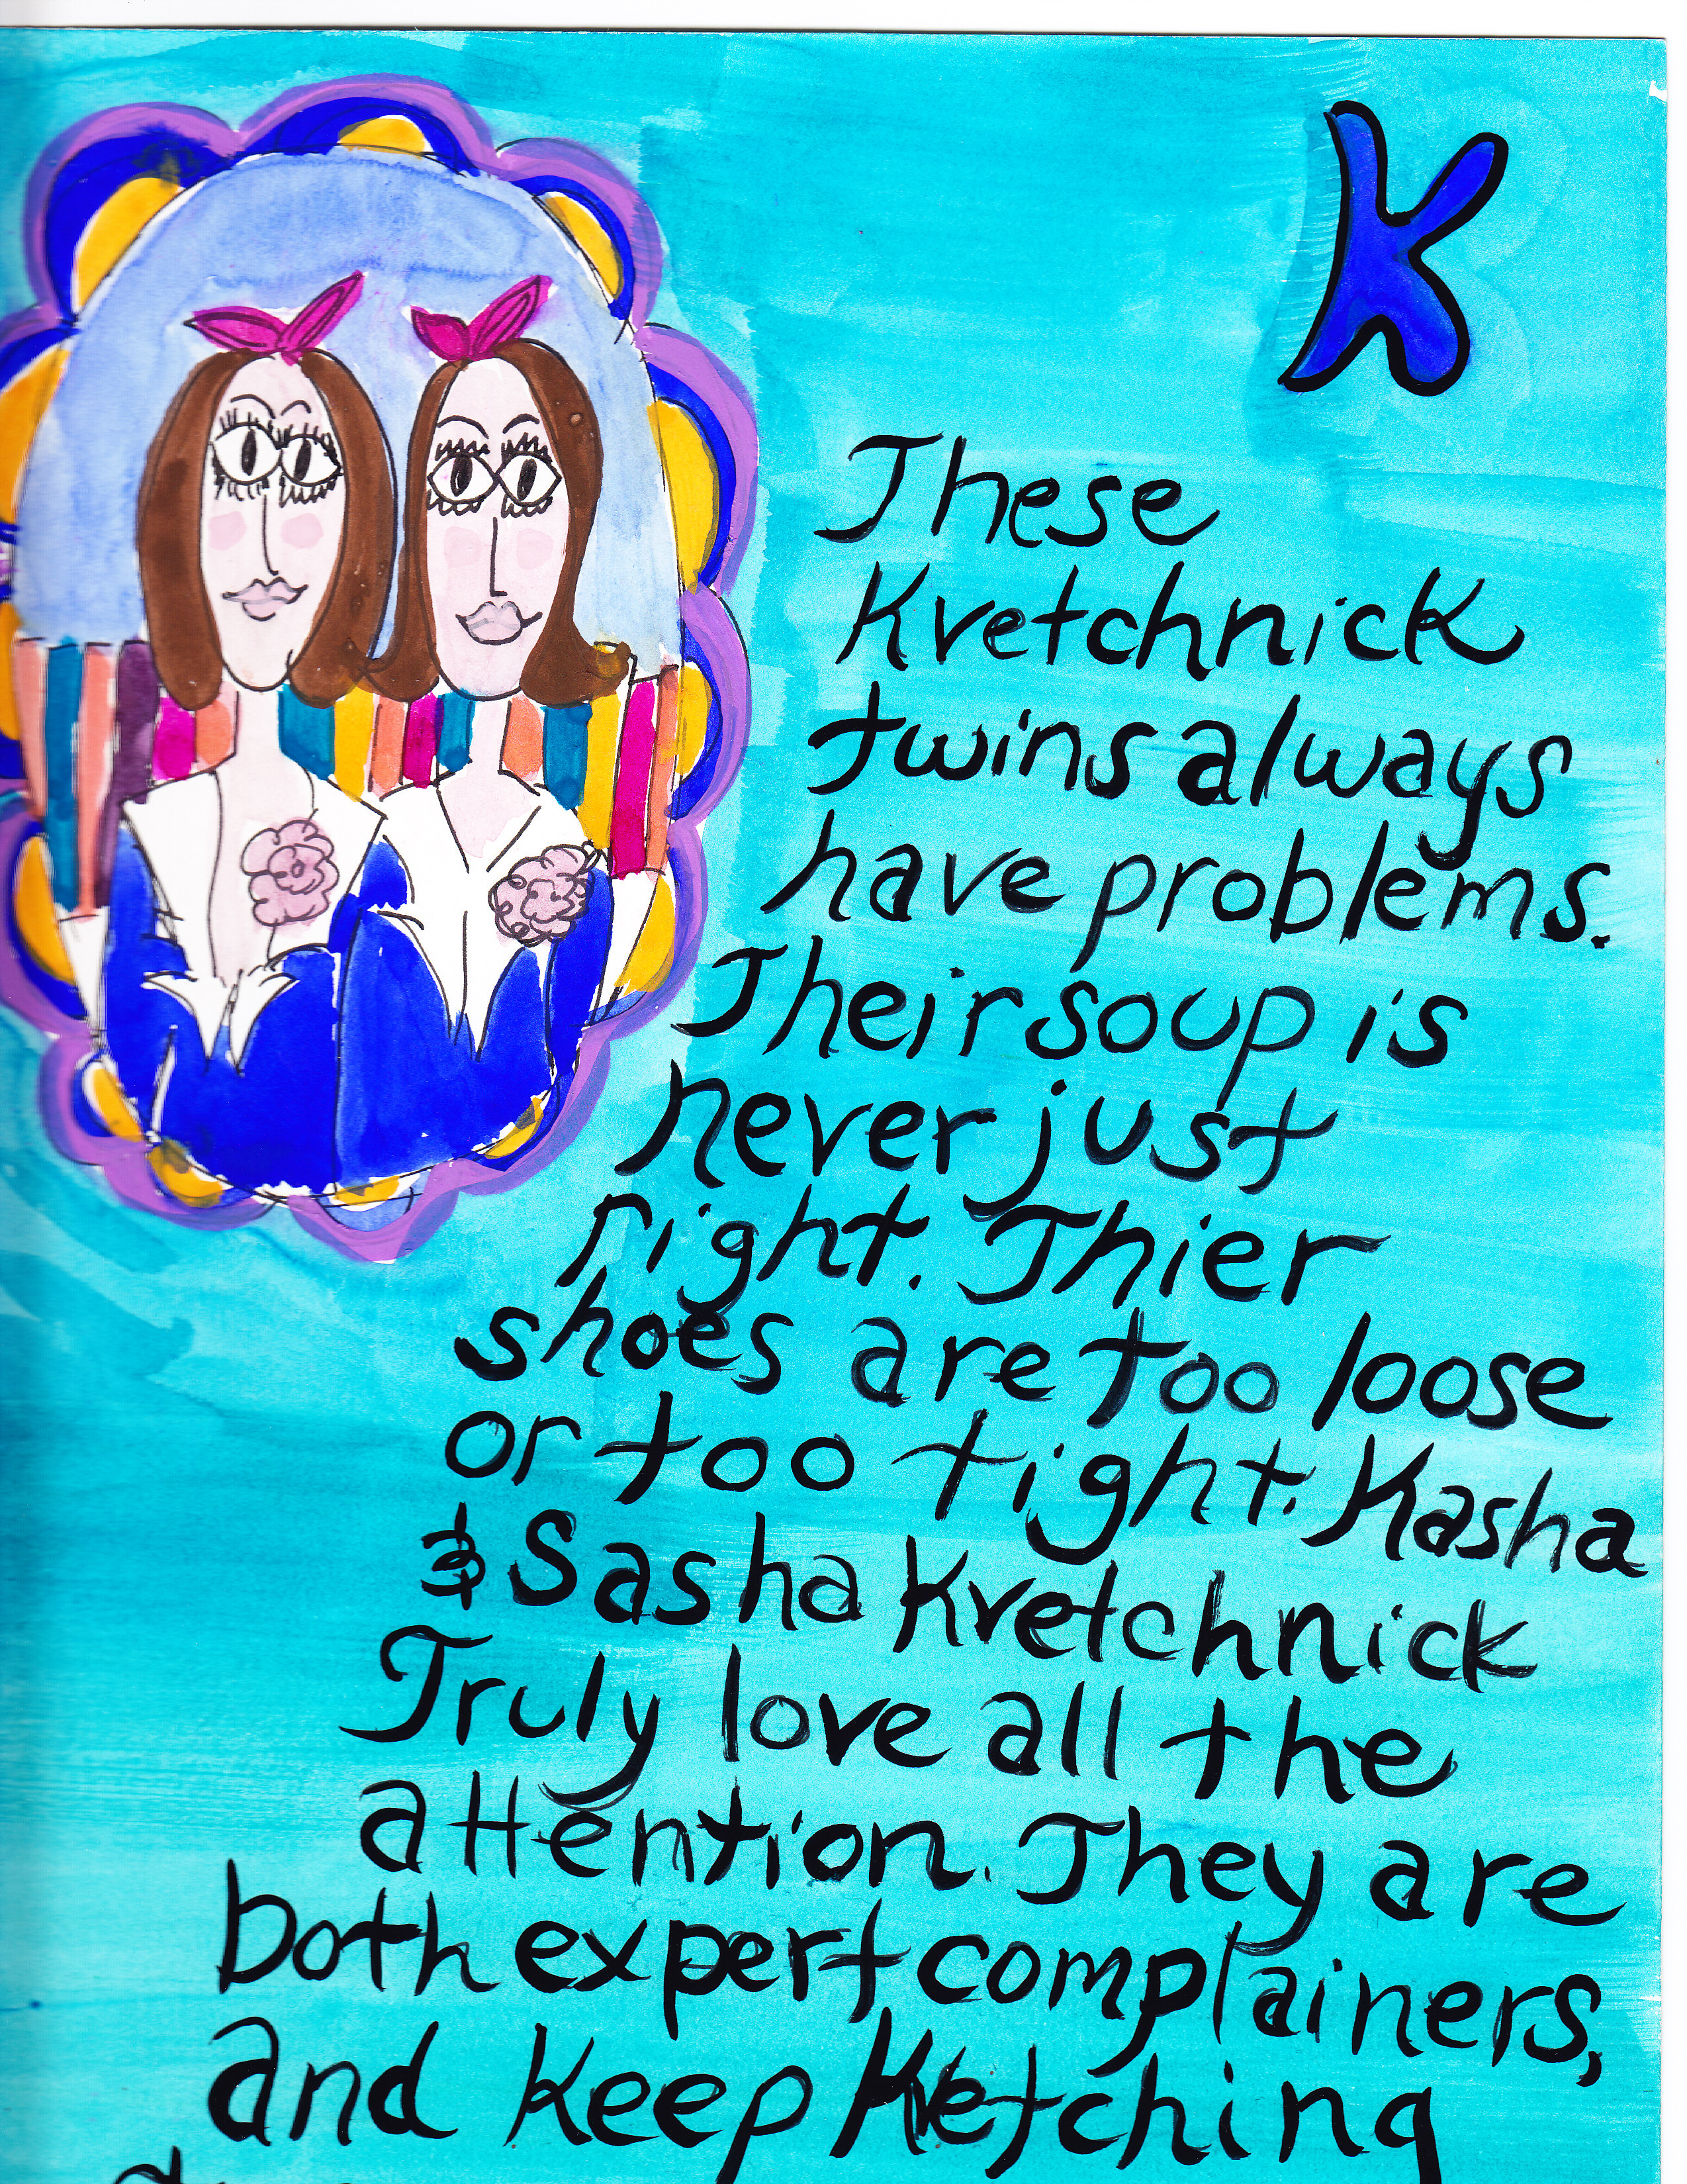 K
These
Kvetchnick
twins always
have problems.
Their soup is
never just
right. Thier
shoes are too loose
or too tight. Kasha
& Sasha Kvetchnick
Truly love all the
attention. They are
both expert complainers,
and keep Kvetching